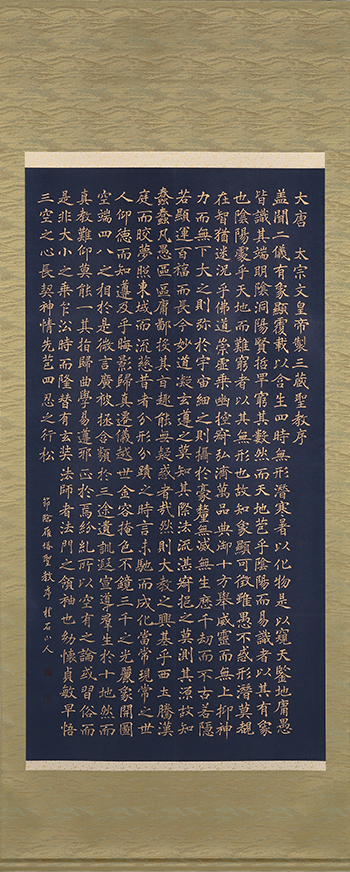 大唐　太宗文皇帝製三藏聖教序
蓋聞二儀有象顯覆載以含生四時無形潛寒暑以化物是以窺天鑒地庸愚
皆識其端明陰洞陽賢哲罕窮其數然而天地苞乎陰陽而易識者以其有象
也陰陽處乎天地而難窮者以其無形也故知象顯可徵雖愚不惑形潛莫覩
在智猶迷況乎佛道崇虛乘幽控寂弘濟萬品典御十方舉威靈而無上抑神
力而無下大之則弥於宇宙細之則攝於豪釐無滅無生歷千劫而不古若隱
若顯運百福而長今妙道凝玄遵之莫知其際法流湛寂挹之莫測其源故知
蠢蠢凡愚區區庸鄙投其旨趣能無疑惑者哉然則大教之興基乎西土騰漢
庭而皎夢照東域而流慈昔者分形分蹟之時言未馳而成化當常現常之世
人仰德而知遵及乎晦影歸真遷儀越世金容掩色不鏡三千之光麗象開圖
空端四八之相於是微言廣被拯含類於三途遺訓遐宣導羣生於十地然而
真教難仰莫能一其指歸曲學易遵邪正於焉紛糺所以空有之論或習俗而
是非大小之乘乍沿時而隆替有玄奘法師者法門之領袖也幼懷貞敏早悟
三空之心長契神情先苞四忍之行松
節臨雁塔聖教序 桂石山人